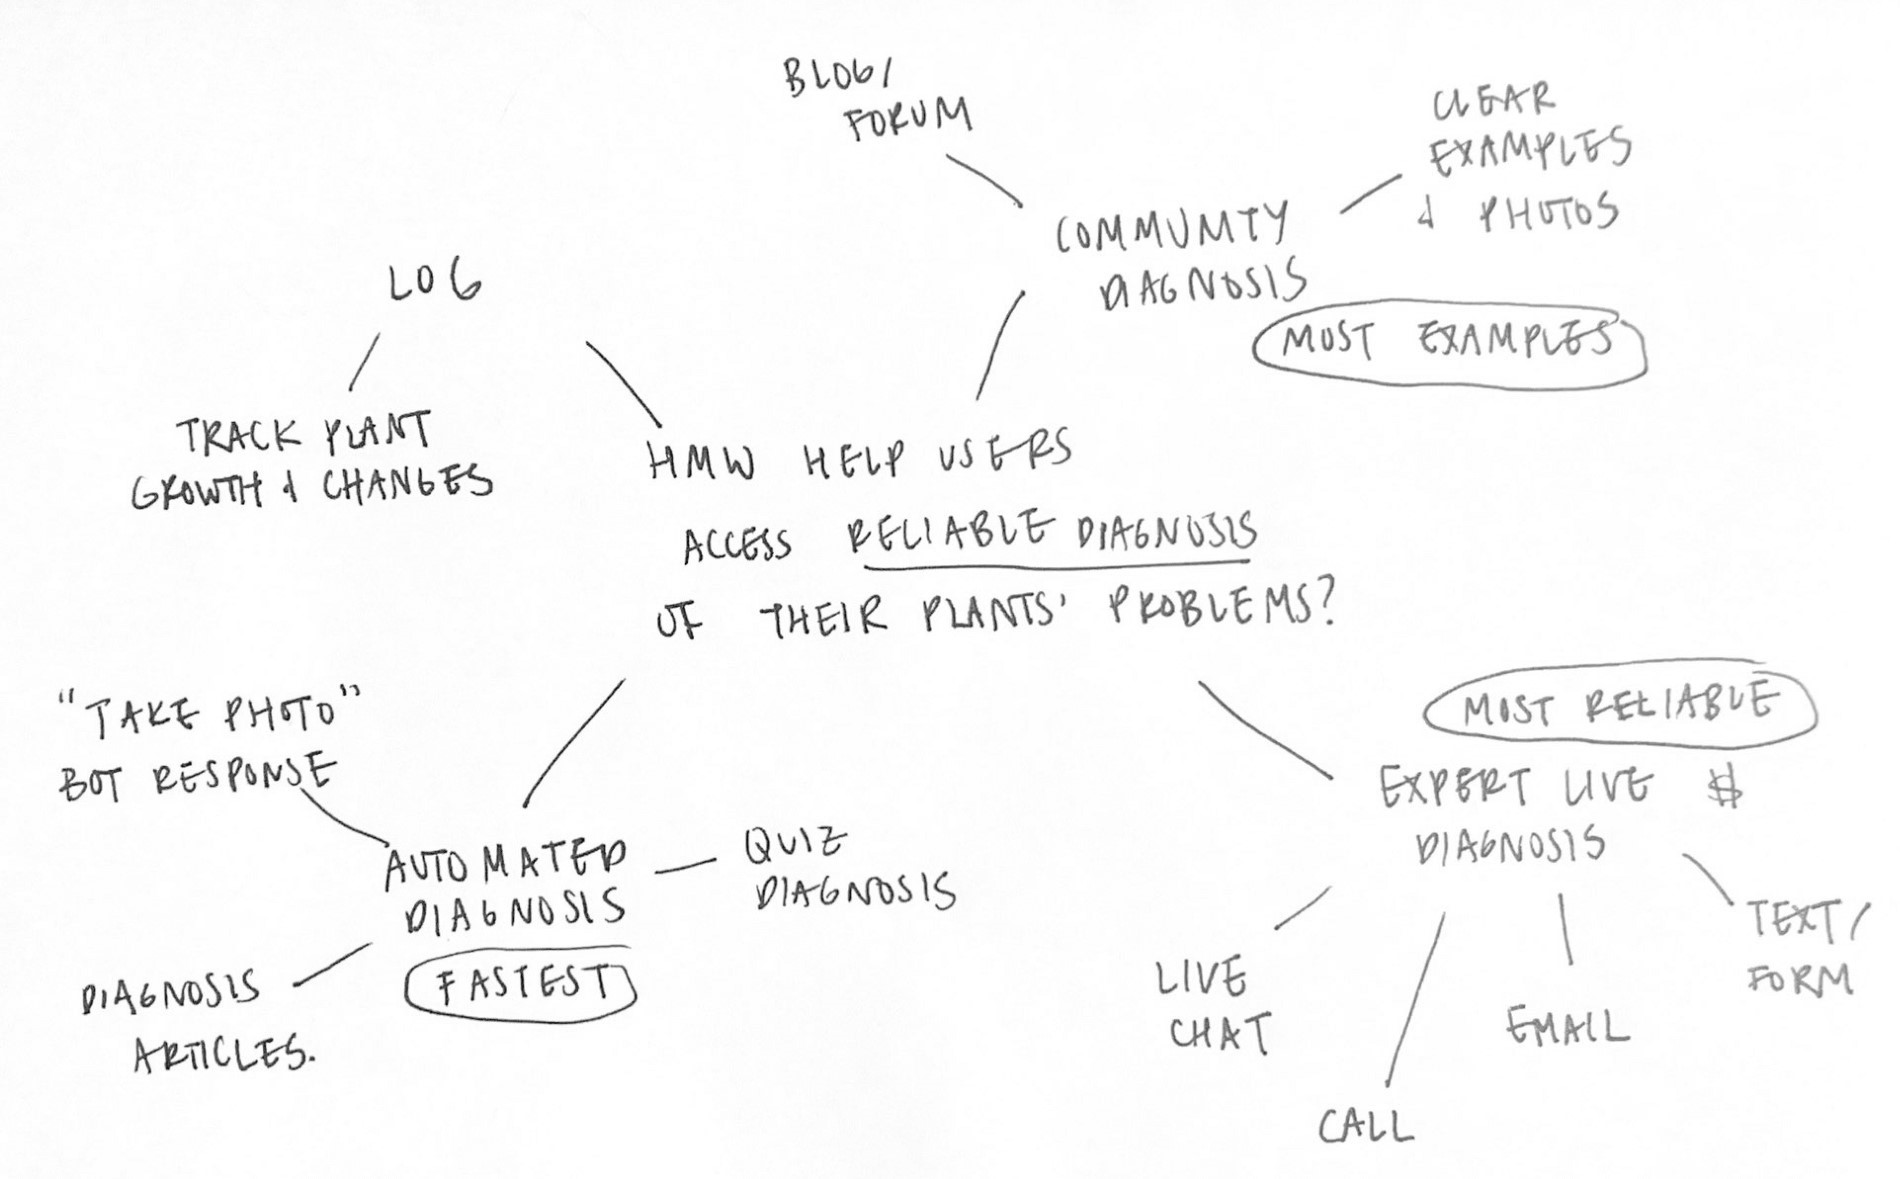 BLOG/
FORUM
CLEAR
EXAMPLES
& PHOTOS
COMMUNITY
DIAGNOSIS
MOST EXAMPLES
LOG
TRACK PLANT
GROWTH & CHANGES
HMW HELP USERS
ACCESS RELIABLE DIAGNOSIS
OF THEIR PLANTS' PROBLEMS?
"TAKE PHOTO"
BOT RESPONSE
AUTOMATED
DIAGNOSIS
FASTEST
QUIZ
DIAGNOSIS
DIAGNOSIS
ARTICLES.
MOST RELIABLE
EXPERT LIVE $
DIAGNOSIS
LIVE
CHAT
CALL
EMAIL
TEXT/
FORM